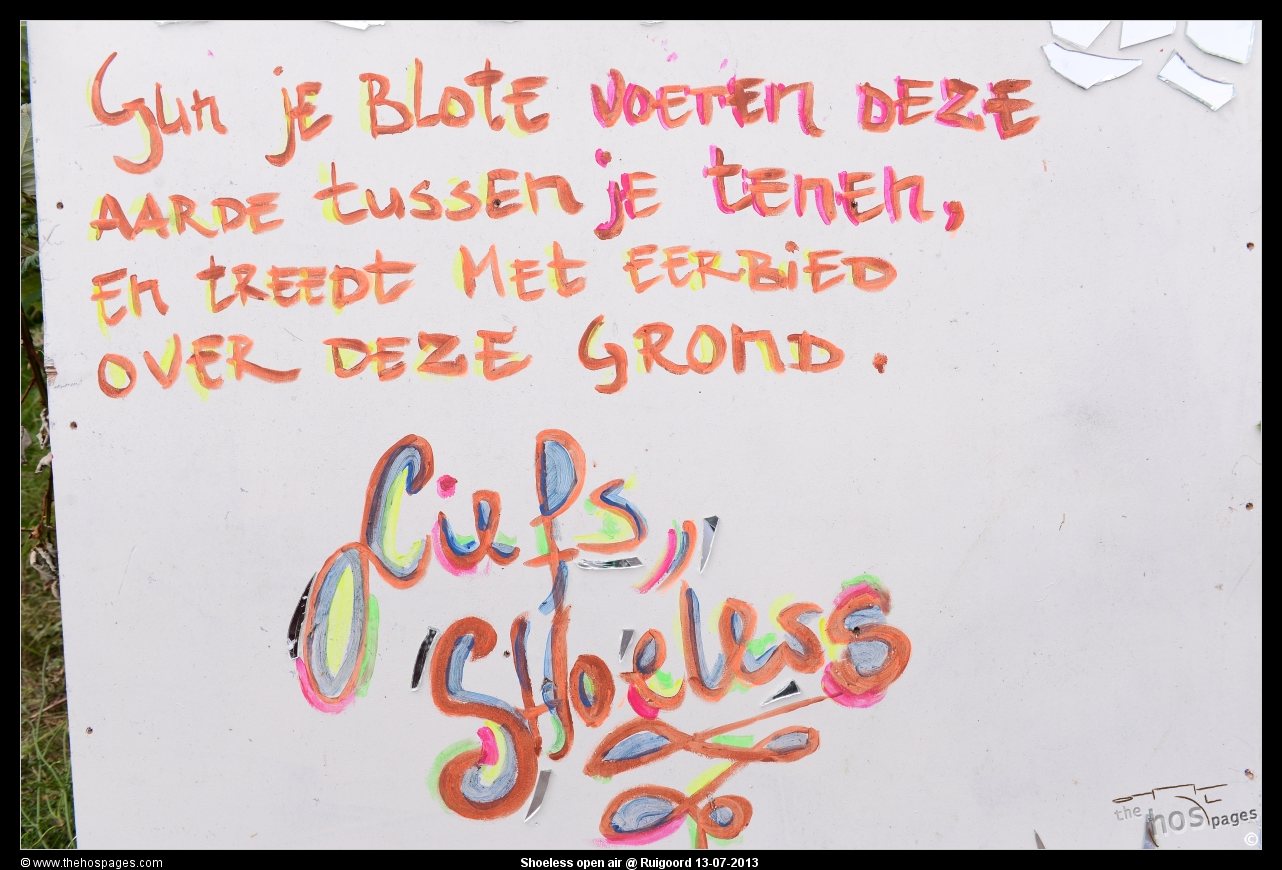 Gun je BLOTE VOETEN DEZE
AARDE tussEn jE tEnEn,
En tREEDt MEt EERBiED
OVER DEZE GROnD.
Liefs,
SHoeless
the hos pages ©
© www.thehospages.com
Shoeless open air @ Ruigoord 13-07-2013